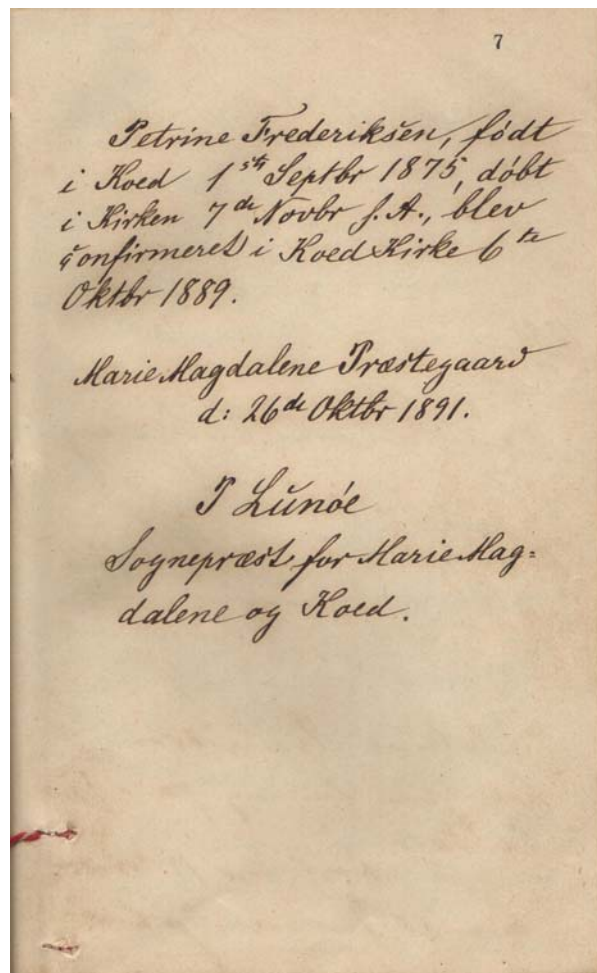 7
Petrine Frederiksen, født
i Koed 1ste Septbr 1875, døbt
i Kirken 7de Novbr s. A., blev
confirmeret i Koed Kirke 6te
Oktbr 1889.
Marie Magdalene Præstegaard
d: 26de Oktbr 1891.
P Lunøe
Sognepræst for Marie Mag=
dalene og Koed.